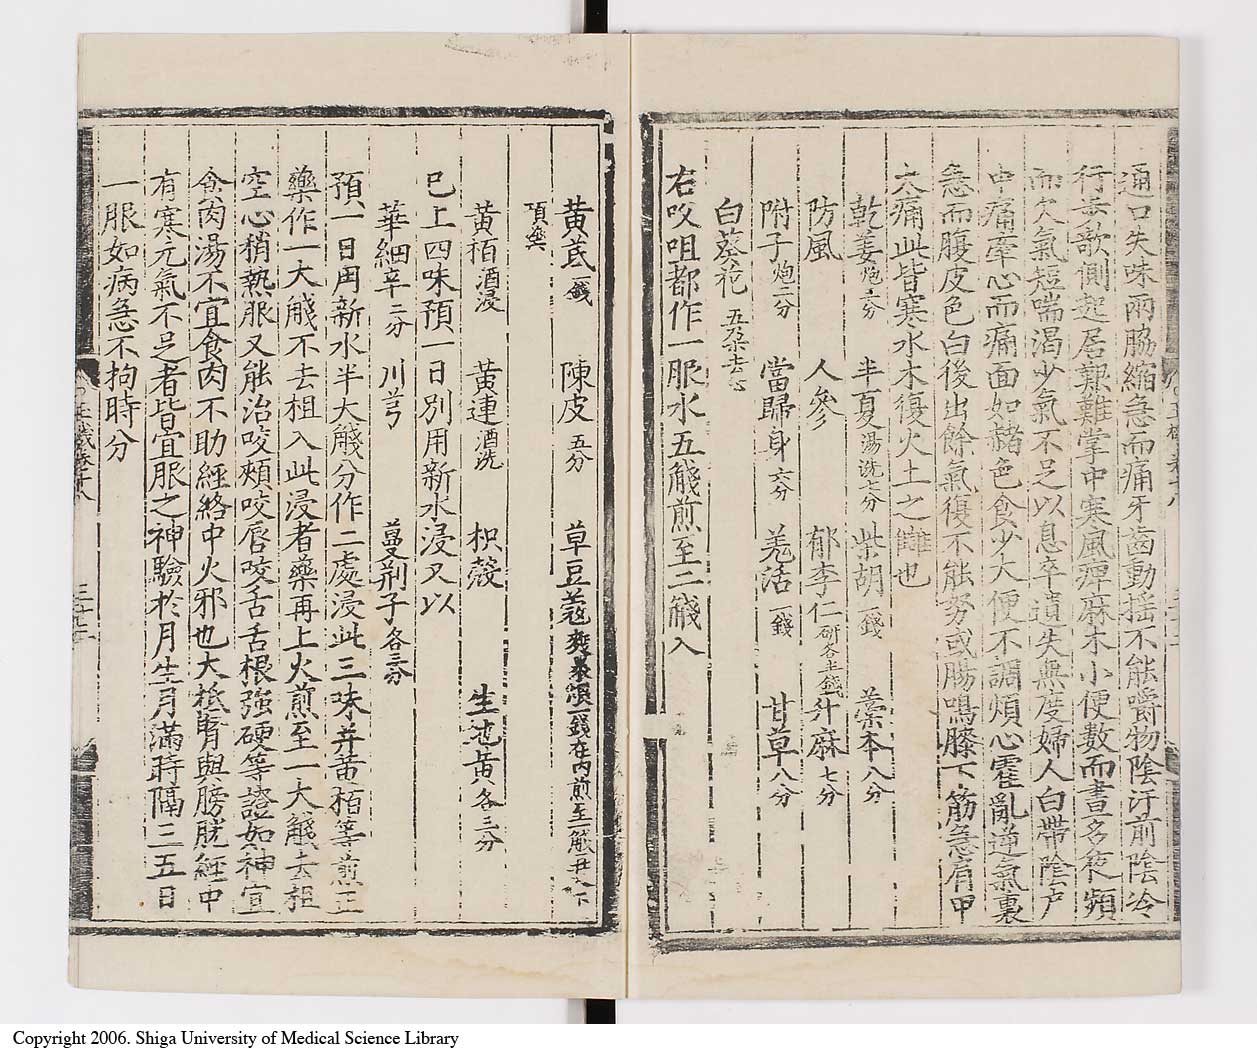 通口失味兩脇縮急而痛牙齒動揺不能嚼物陰汗前陰冷
行㱔欹側起居艱難掌中寒風痺麻木小便數而晝多夜頻
而欠氣短喘渴少氣不足以息卒遺失無度婦人白帶陰戸
中痛牽心而痛面如赭色食少大便不調煩心霍亂逆氣裏
急而腹皮色白後出餘氣復不能努或腸鳴膝下筋急肩甲
大痛此皆寒水木復火土之讎也
乾姜炮六分 半夏湯洗七分 柴胡一錢 藁本八分
防風 人參 郁李仁研各半錢 升麻七分
附子炮二分 當歸身六分 羗活一錢 甘草八分
白葵花五朶去心
右㕮咀都作一服水五觥煎至二觥入
黃芪一錢 陳皮五分 草豆蔻
項藥
黃栢酒浸 黃連酒洗 枳殼 生苄黃各三分
已上四味預一日別用新水浸又以
華細辛二分 川芎 蔓荆子各三分
預一日用新水半大觥分作二處浸此三味并黃栢等煎正
藥作一大觥不去柤入此浸者藥再上火煎至一大觥去柤
空心稍熱服又能治咬頰咬唇咬舌舌根強硬等證如神宜
食肉湯不宜食肉不助經絡中火邪也大槪腎與膀胱經中
有寒元氣不足者皆宜服之神驗於月生月滿時隔三五日
一服如病急不拘時分
Copyright 2006. Shiga University of Medical Science Library